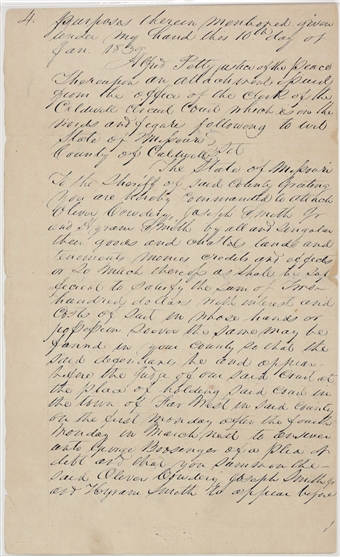 4. purposes therein mentioned given
under my hand this 10th day of
Jan 1839
Alfred Potty justice of the peace
Thereupon an attachment issued
from the office of the clerk of the
Caldwell Circuit Court which is in the
words and figure following to wit
State of Missouri
County of Caldwell Sct
The State of Missouri
To the Sheriff of said County Greeting
You are hereby commanded to attach
Oliver Cowdery Joseph Smith Jr
and Hyram Smith by all and singular
their goods and chattels lands and
tenements monies credits and effects
or so much thereof as shall be suf
ficient to satisfy the sum of
hundred dollars with interest and
costs of suit in whose hands or
possession soever the same may be
found in your county so that the
said defendants be and appear
before the judge of our said court at
the place of holding said court in
the town of Far West in said County
on the first monday after the fourth
monday in March next to answer
unto George of a plea of
debt and that you summon the
said Oliver Cowdery Joseph Smith Jr
and Hyram Smith to appear before